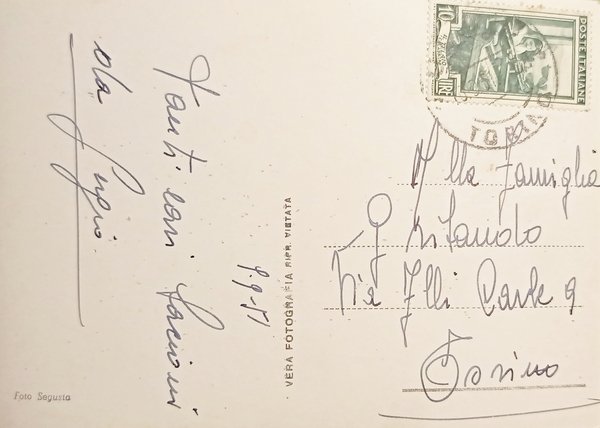 Tanti cari bacioni
da
9.9-51
VERA FOTOGRAFIA RIPR. VIETATA
Foto Segusta
10
LIRE
POSTE ITALIANE
TORINO
Alla Famiglia
Via F.lli Carle 9
Torino